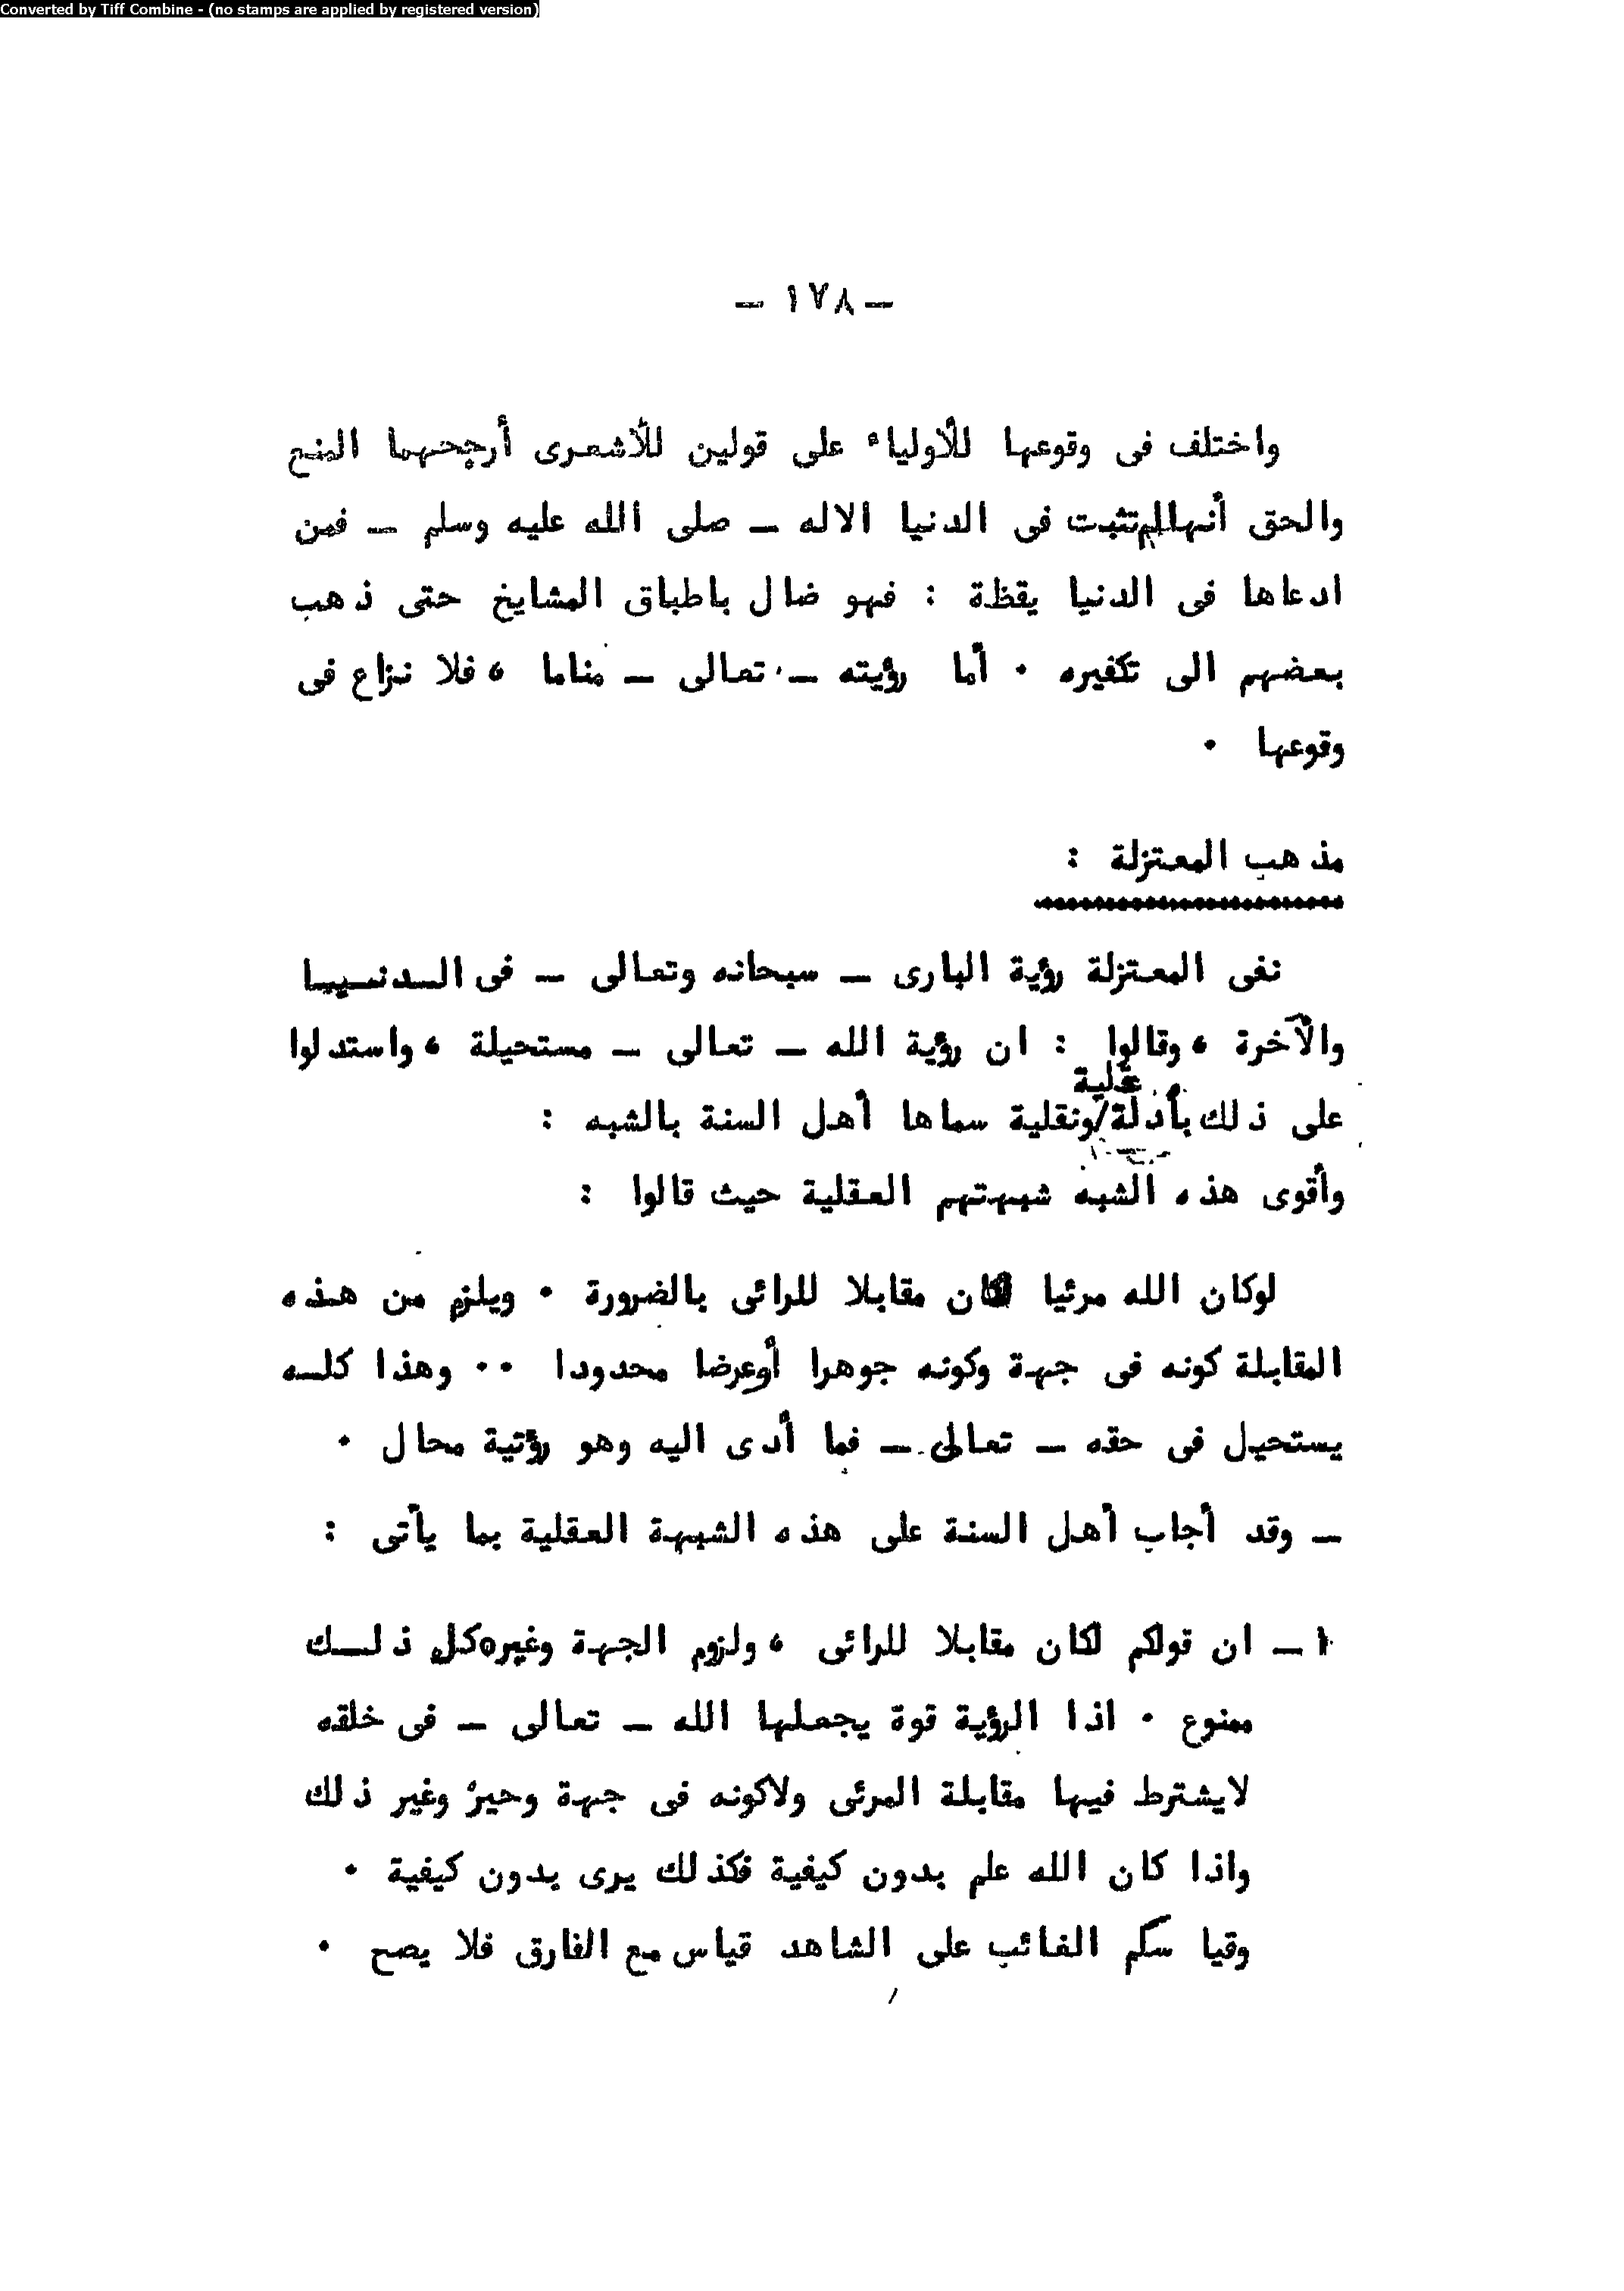 Converted by Tiff Combine - (no stamps are applied by registered version)
— ١٧٨ —
واختلف فى وقوعها للأولياء على قولين للأشعرى أرجحهما المنع
والحق أنها لم تثبت فى الدنيا الاله — صلى الله عليه وسلم — فمن
ادعاها فى الدنيا يقظة : فهو ضال باطباق المشايخ حتى ذهب
بعضهم الى تكفيره . أما رؤيته — تعالى — مناما ، فلا نزاع فى
وقوعها .
مذهب المعتزلة :
نفى المعتزلة رؤية البارى — سبحانه وتعالى — فى الدنيا
والآخرة ، وقالوا : ان رؤية الله — تعالى — مستحيلة ، واستدلوا
على ذلك بأدلة / عقلية ونقلية سماها أهل السنة بالشبه :
وأقوى هذه الشبه شبهتهم العقلية حيث قالوا :
لوكان الله مرئيا لكان مقابلا للرائى بالضرورة . ويلزم من هذه
المقابلة كونه فى جهة وكونه جوهرا أوعرضا محدودا .. وهذا كله
يستحيل فى حقه — تعالى — فما أدى اليه وهو رؤتية محال .
— وقد أجاب أهل السنة على هذه الشبهة العقلية بما يأتى :
١ — ان قولكم لكان مقابلا للرائى ، ولزوم الجهة وغيره كل ذلك
ممنوع . اذا الرؤية قوة يجعلها الله — تعالى — فى خلقه
لايشترط فيها مقابلة المرئى ولاكونه فى جهة وحيز وغير ذلك
واذا كان الله علم بدون كيفية فكذلك يرى بدون كيفية .
وقياسكم الغائب على الشاهد قياس مع الفارق فلا يصح .